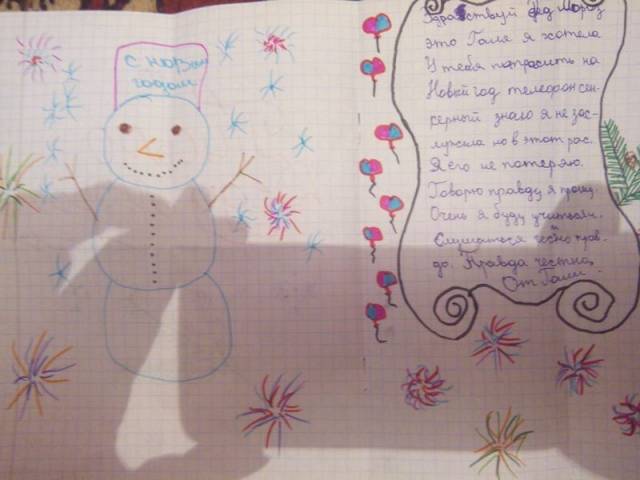 с новым
годом
Здравствуй Дед Мороз
это Галя я хотела
у тебя попрасить на
Новый год телефон сен-
серный знаю я не зас-
лужила но в этот рас.
Я его не потеряю.
Говорю правду я прошу.
Очень я буду учиться.
Слушаться чесно прав-
до. Правда честна,
От Гали.